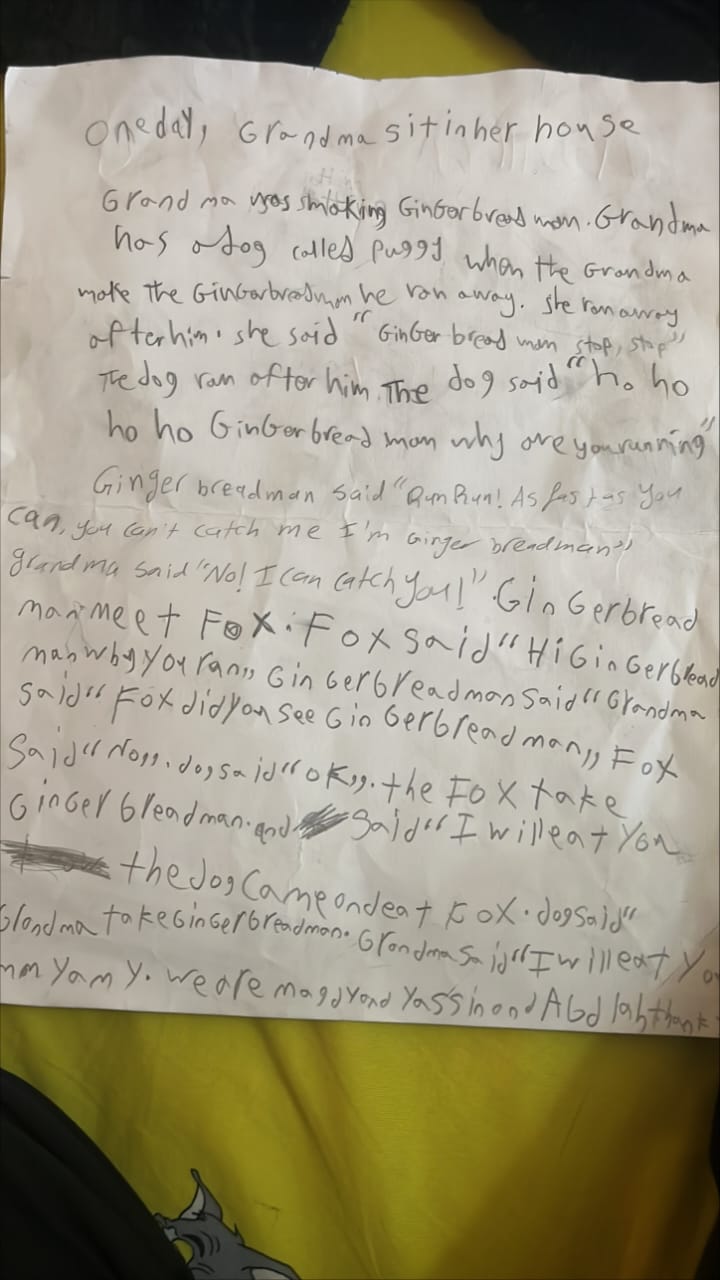 One day, Grandma sit in her house
Grandma was smoking Gingerbread man. Grandma
has a dog called Puggy when the Grandma
make the Gingerbreadman he ran away. She ran away
after him. she said "Ginger bread man stop, stop"
The dog ran after him. The dog said "ho ho
ho ho Gingerbread man why are you running"
Ginger breadman said "Run Run! As fast as you
can, you can't catch me I'm Ginger breadman"
grandma said "No! I can catch you!". Gingerbread
man meet Fox. Fox said "Hi Gingerbread
man why you ran" Gingerbreadman said "Grandma
said" Fox did you see Gingerbread man" Fox
said "No". dog said "ok". the Fox take
Ginger breadman. and said "I will eat you
the dog came and eat Fox. dog said"
Grandma take Gingerbreadman. Grandma said "I will eat yo
yamy. we are magdy and Yassin and Abd lah thank